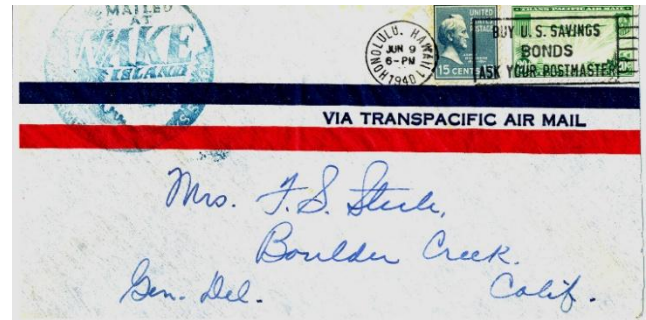 MAILED
AT
WAKE
ISLAND
HONOLULU, HAWAII
JUN 9
6-PM
1940
UNITED
STATES
POSTAGE
15 CENTS
TRANS-PACIFIC AIR MAIL
BUY U.S. SAVINGS
BONDS
ASK YOUR POSTMASTER
VIA TRANSPACIFIC AIR MAIL
Mrs. F. S. Steele,
Boulder Creek.
Gen. Del. Calif.